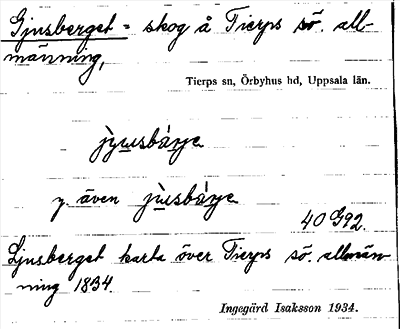 Gjusberget = skog å Tierps sö. all-
männing,
Tierps sn, Örbyhus hd, Uppsala län.
y. även
40 G92.
Ljusberget karta över Tierps sö. allmän
ning 1834.
Ingegärd Isaksson 1934.